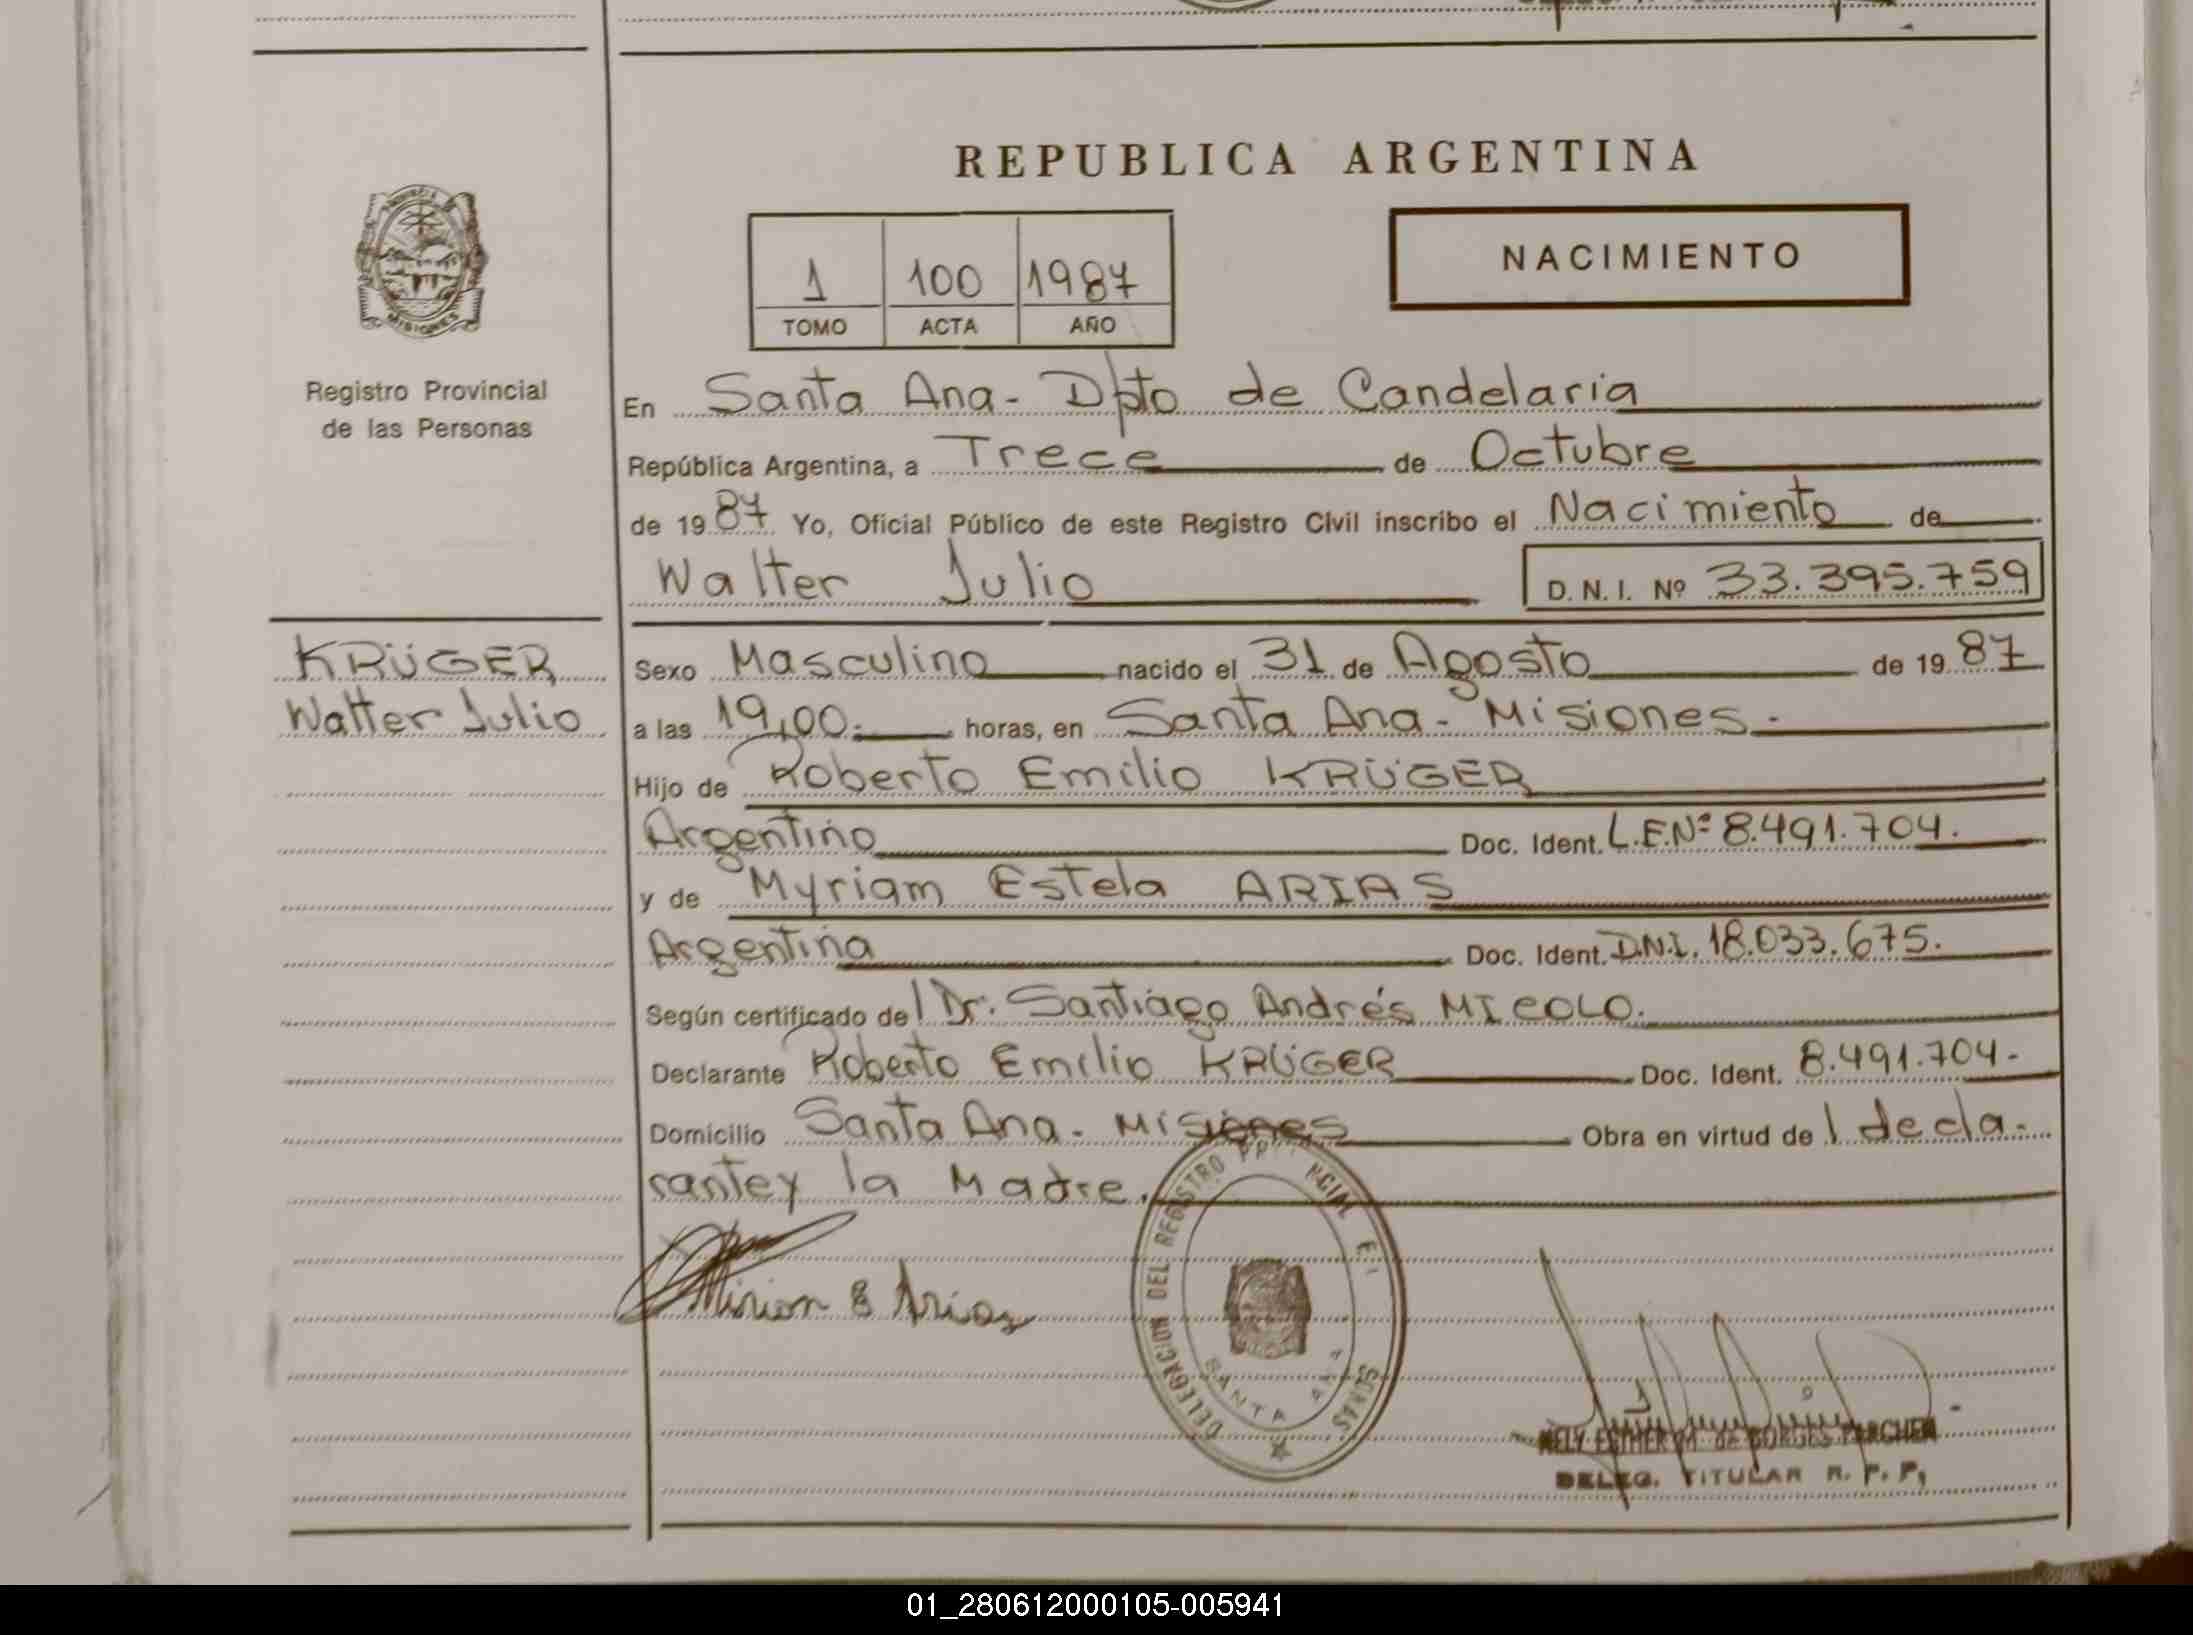 REPUBLICA ARGENTINA
NACIMIENTO
1 100 1987
TOMO ACTA AÑO
MISIONES
Registro Provincial
de las Personas
En Santa Ana - Dpto de Candelaria
República Argentina, a Trece de Octubre
de 1987 Yo, Oficial Público de este Registro Civil inscribo el Nacimiento de
Walter Julio D. N. I. Nº 33.395.759
KRÜGER
Walter Julio
Sexo Masculino nacido el 31 de Agosto de 1987
a las 19,00.- horas, en Santa Ana - Misiones.-
Hijo de Roberto Emilio KRÜGER
Argentino Doc. Ident. L.E.Nº 8.491.704.
y de Myriam Estela ARIAS
Argentina Doc. Ident. D.N.I. 18.033.675.
Según certificado del Dr. Santiago Andrés MICOLO.
Declarante Roberto Emilio KRÜGER Doc. Ident. 8.491.704-
Domicilio Santa Ana - Misiones Obra en virtud del decla-
rante y la Madre.
Mirian E Arias
DELEGACION DEL REGISTRO
SANTA ANA
DELEG. TITULAR R. P. P.
01_280612000105-005941